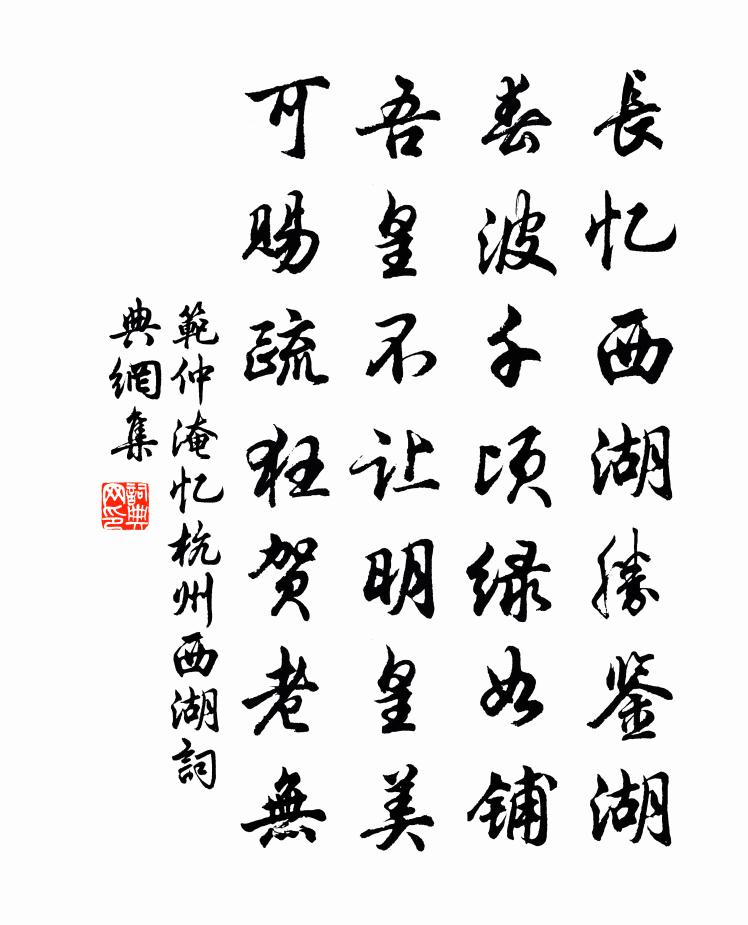 長忆西湖勝鉴湖
春波千顷绿如铺
吾皇不让明皇美
可赐疏狂贺老無
範仲淹忆杭州西湖詞
典網集
詞典
网印